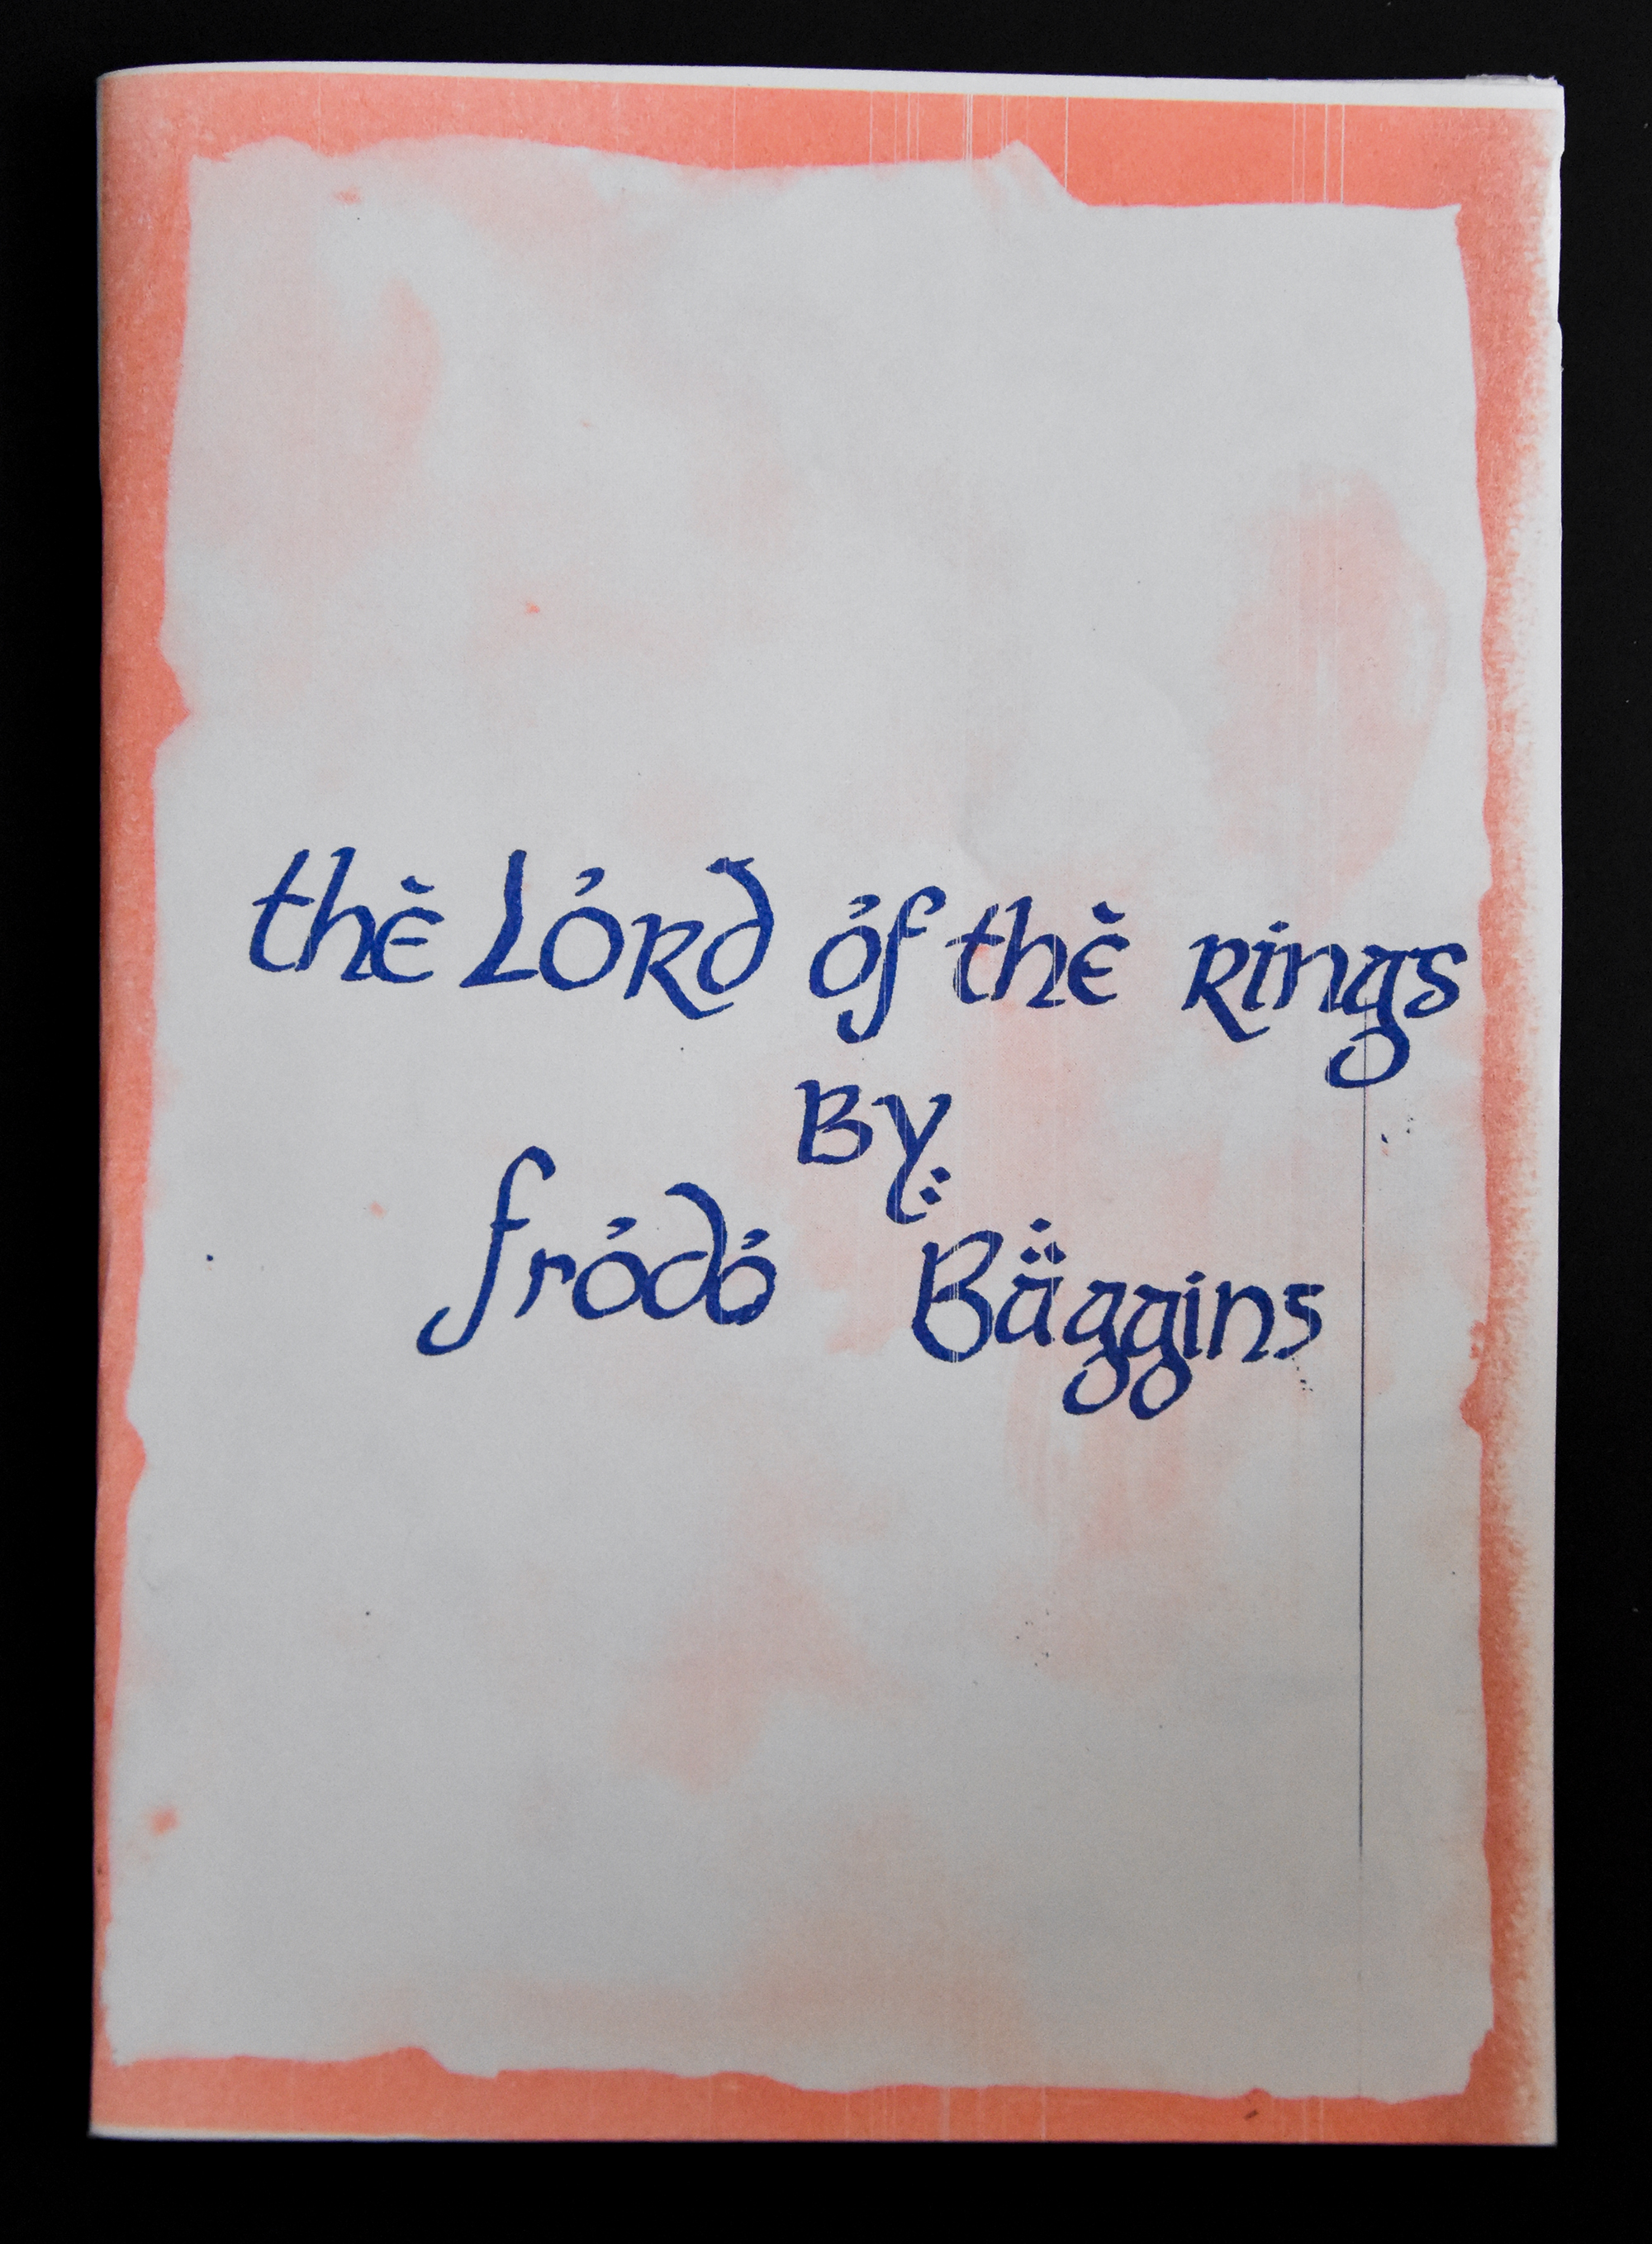 thè Lórd óf thè Rings
By
fródó Bäggins